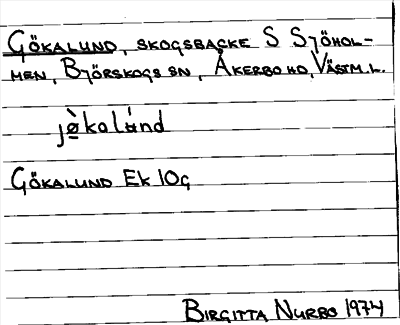 GÖKALUND, SKOGSBACKE S SJÖHOL-
MEN, BJÖRSKOGS SN, ÅKERBO HD, VÄSTM.L.
jø̀kalùnd
GÖKALUND Ek 10g
BIRGITTA NURBO 1974